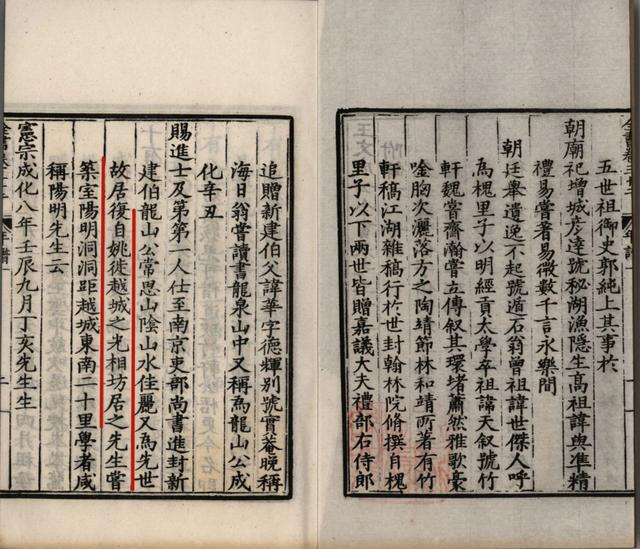 五世祖御史郭純上其事於
朝廟祀增城彥達號秘湖漁隱生高祖諱與準精
禮易嘗著易微數千言永樂間
朝廷舉遺逸不起號遁石翁曾祖諱世傑人呼
為槐里子以明經貢太學卒祖諱天叙號竹
軒魏嘗齋瀚嘗立傳叙其環堵蕭然雅歌豪
唫胸次灑落方之陶靖節林和靖所著有竹
軒稿江湖雜稿行於世封翰林院修撰自槐
里子以下兩世皆贈嘉議大夫禮部右侍郎
追贈新建伯父諱華字德輝別號實菴晚稱
海日翁嘗讀書龍泉山中又稱為龍山公成
化辛丑
賜進士及第第一人仕至南京吏部尚書進封新
建伯龍山公常思山陰山水佳麗又為先世
故居復自姚徙越城之光相坊居之先生嘗
築室陽明洞洞距越城東南二十里學者咸
稱陽明先生云
憲宗成化八年壬辰九月丁亥先生生
年譜